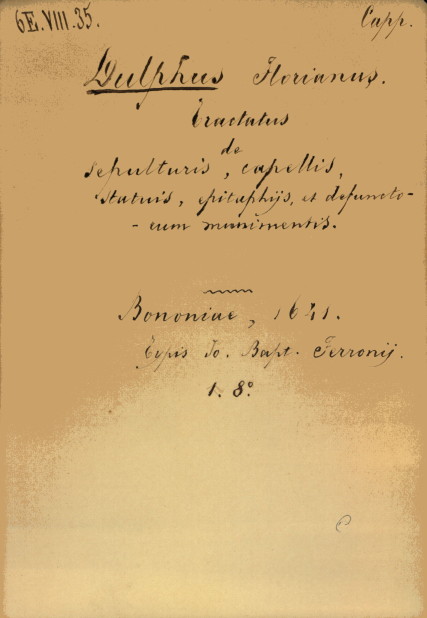 6E.VIII.35.
Capp.
Dulphus Florianus.
Tractatus
de
sepulturis, capellis,
statuis, epitaphijs, et defuncto-
-rum munimentis.
Bononiae, 1641.
Typis Jo. Bapt. Ferronij.
1. 8°.